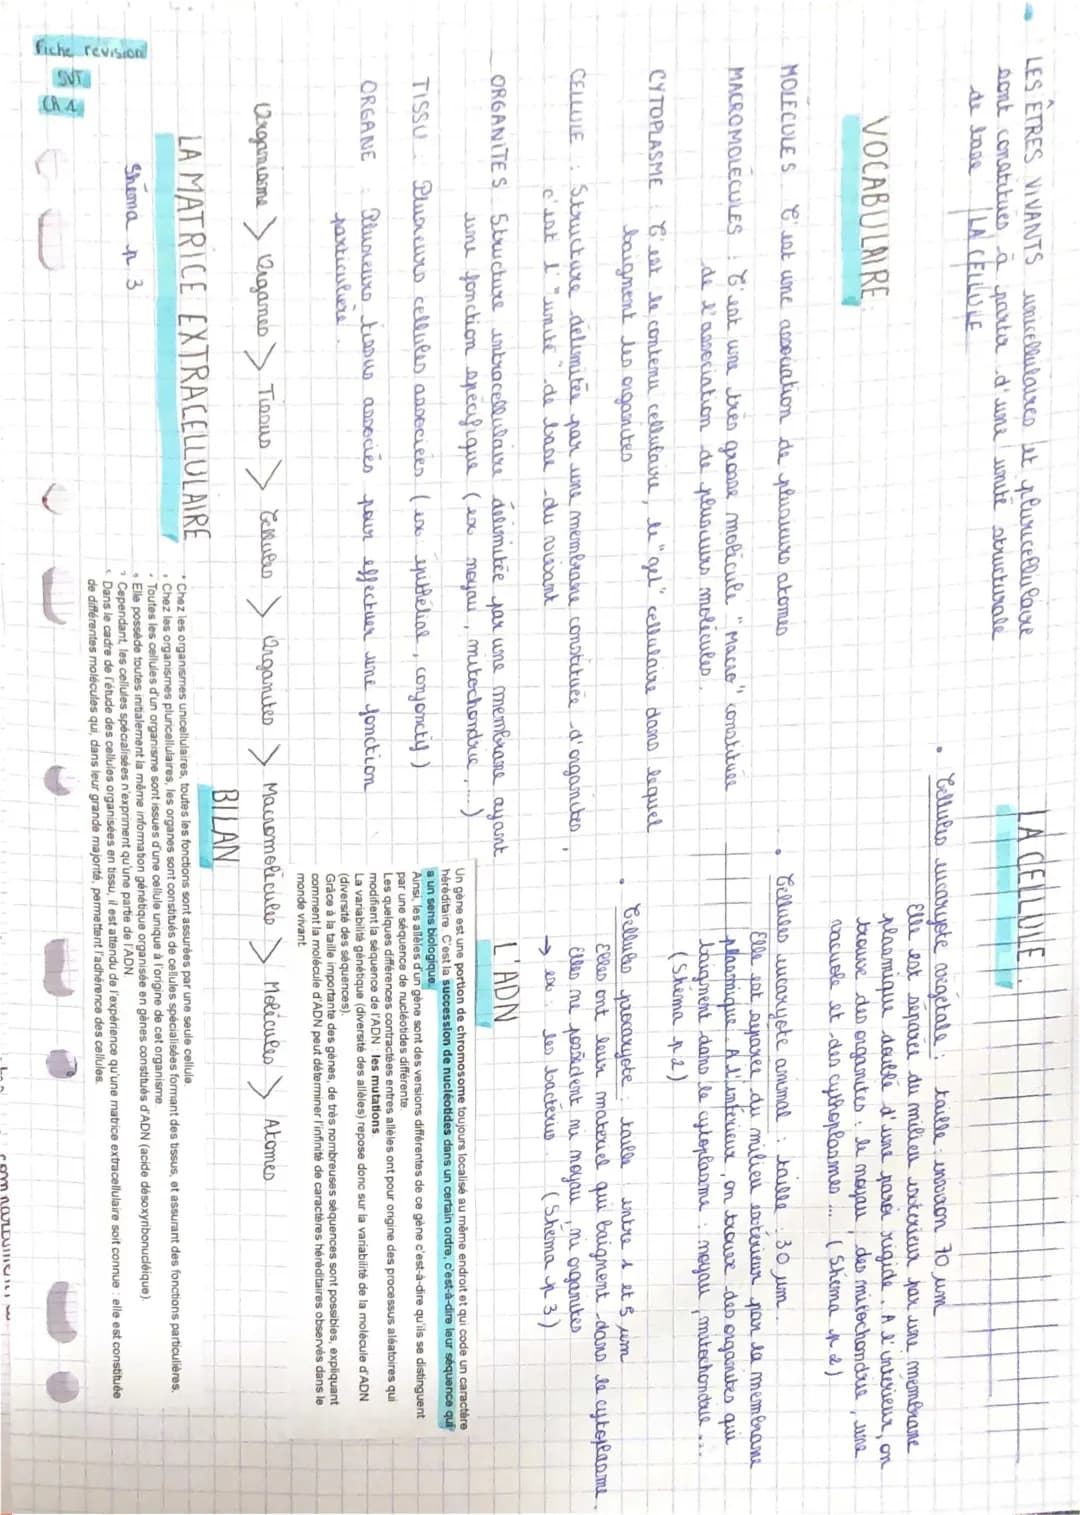 Fiche révision
SVT
Ch 1
LES ÊTRES VIVANTS unicellulaires et pluricellulaire
sont constitués à partir d'une unité structurale
de base LA CELLULE
VOCABULAIRE :
MOLÉCULES C'est une association de plusieurs atomes
MACROMOLÉCULES : C'est une très grosse molécule "Macro" constituée
de l'association de plusieurs molécules.
CYTOPLASME : C'est le contenu cellulaire, le "gel" cellulaire dans lequel
baignent les organites
CELLULE : Structure délimitée par une membrane constituée d'organites,
c'est l'"unité" de base du vivant
ORGANITES Structure intracellulaire délimitée par une membrane ayant
une fonction spécifique (ex noyau, mitochondrie, ...)
TISSU : Plusieurs cellules associées (ex: épithélial, conjonctif)
ORGANE : Plusieurs tissus associés pour effectuer une fonction
particulière.
Organisme > Organes > Tissus > Cellules > Organites > Macromolécules > Molécules > Atomes
LA MATRICE EXTRACELLULAIRE
Shéma p. 3
LA CELLULE.
• Cellules eucaryote végétale : taille : environ 70 µm
Elle est séparée du milieu extérieur par une membrane
plasmique doublé d'une paroi rigide. A l'intérieur, on
trouve des organites : le noyau, des mitochondrie, une
vacuole et des cythoplasmes ... (Shéma p 2)
• Cellules eucaryote animal : taille : 30 µm.
Elle est séparée du milieu extérieur par la membrane
plasmique. A l'intérieur, on trouve des organites qui
baignent dans le cytoplasme : noyau, mitochondrie ...
(Shéma p.2)
• Cellules procaryote : taille entre 1 et 5 µm
Elles ont leur matériel qui baignent dans le cytoplasme.
Elles ne possèdent ni noyau, ni organites
→ ex : les bactéries. (Shéma p 3)
L'ADN
Un gène est une portion de chromosome toujours localisé au même endroit et qui code un caractère
héréditaire. C'est la succession de nucléotides dans un certain ordre, c'est-à-dire leur séquence qui
a un sens biologique.
Ainsi, les allèles d'un gène sont des versions différentes de ce gène c'est-à-dire qu'ils se distinguent
par une séquence de nucléotides différente.
Les quelques différences contractées entres allèles ont pour origine des processus aléatoires qui
modifient la séquence de l'ADN : les mutations.
La variabilité génétique (diversité des allèles) repose donc sur la variabilité de la molécule d'ADN
(diversité des séquences).
Grâce à la taille importante des gènes, de très nombreuses séquences sont possibles, expliquant
comment la molécule d'ADN peut déterminer l'infinité de caractères héréditaires observés dans le
monde vivant.
BILAN
• Chez les organismes unicellulaires, toutes les fonctions sont assurées par une seule cellule.
• Chez les organismes pluricellulaires, les organes sont constitués de cellules spécialisées formant des tissus, et assurant des fonctions particulières.
• Toutes les cellules d'un organisme sont issues d'une cellule unique à l'origine de cet organisme.
• Elle possède toutes initialement la même information génétique organisée en gènes constitués d'ADN (acide désoxyribonucléique).
• Cependant, les cellules spécialisées n'expriment qu'une partie de l'ADN.
• Dans le cadre de l'étude des cellules organisées en tissu, il est attendu de l'expérience qu'une matrice extracellulaire soit connue : elle est constituée
de différentes molécules qui, dans leur grande majorité, permettent l'adhérence des cellules.